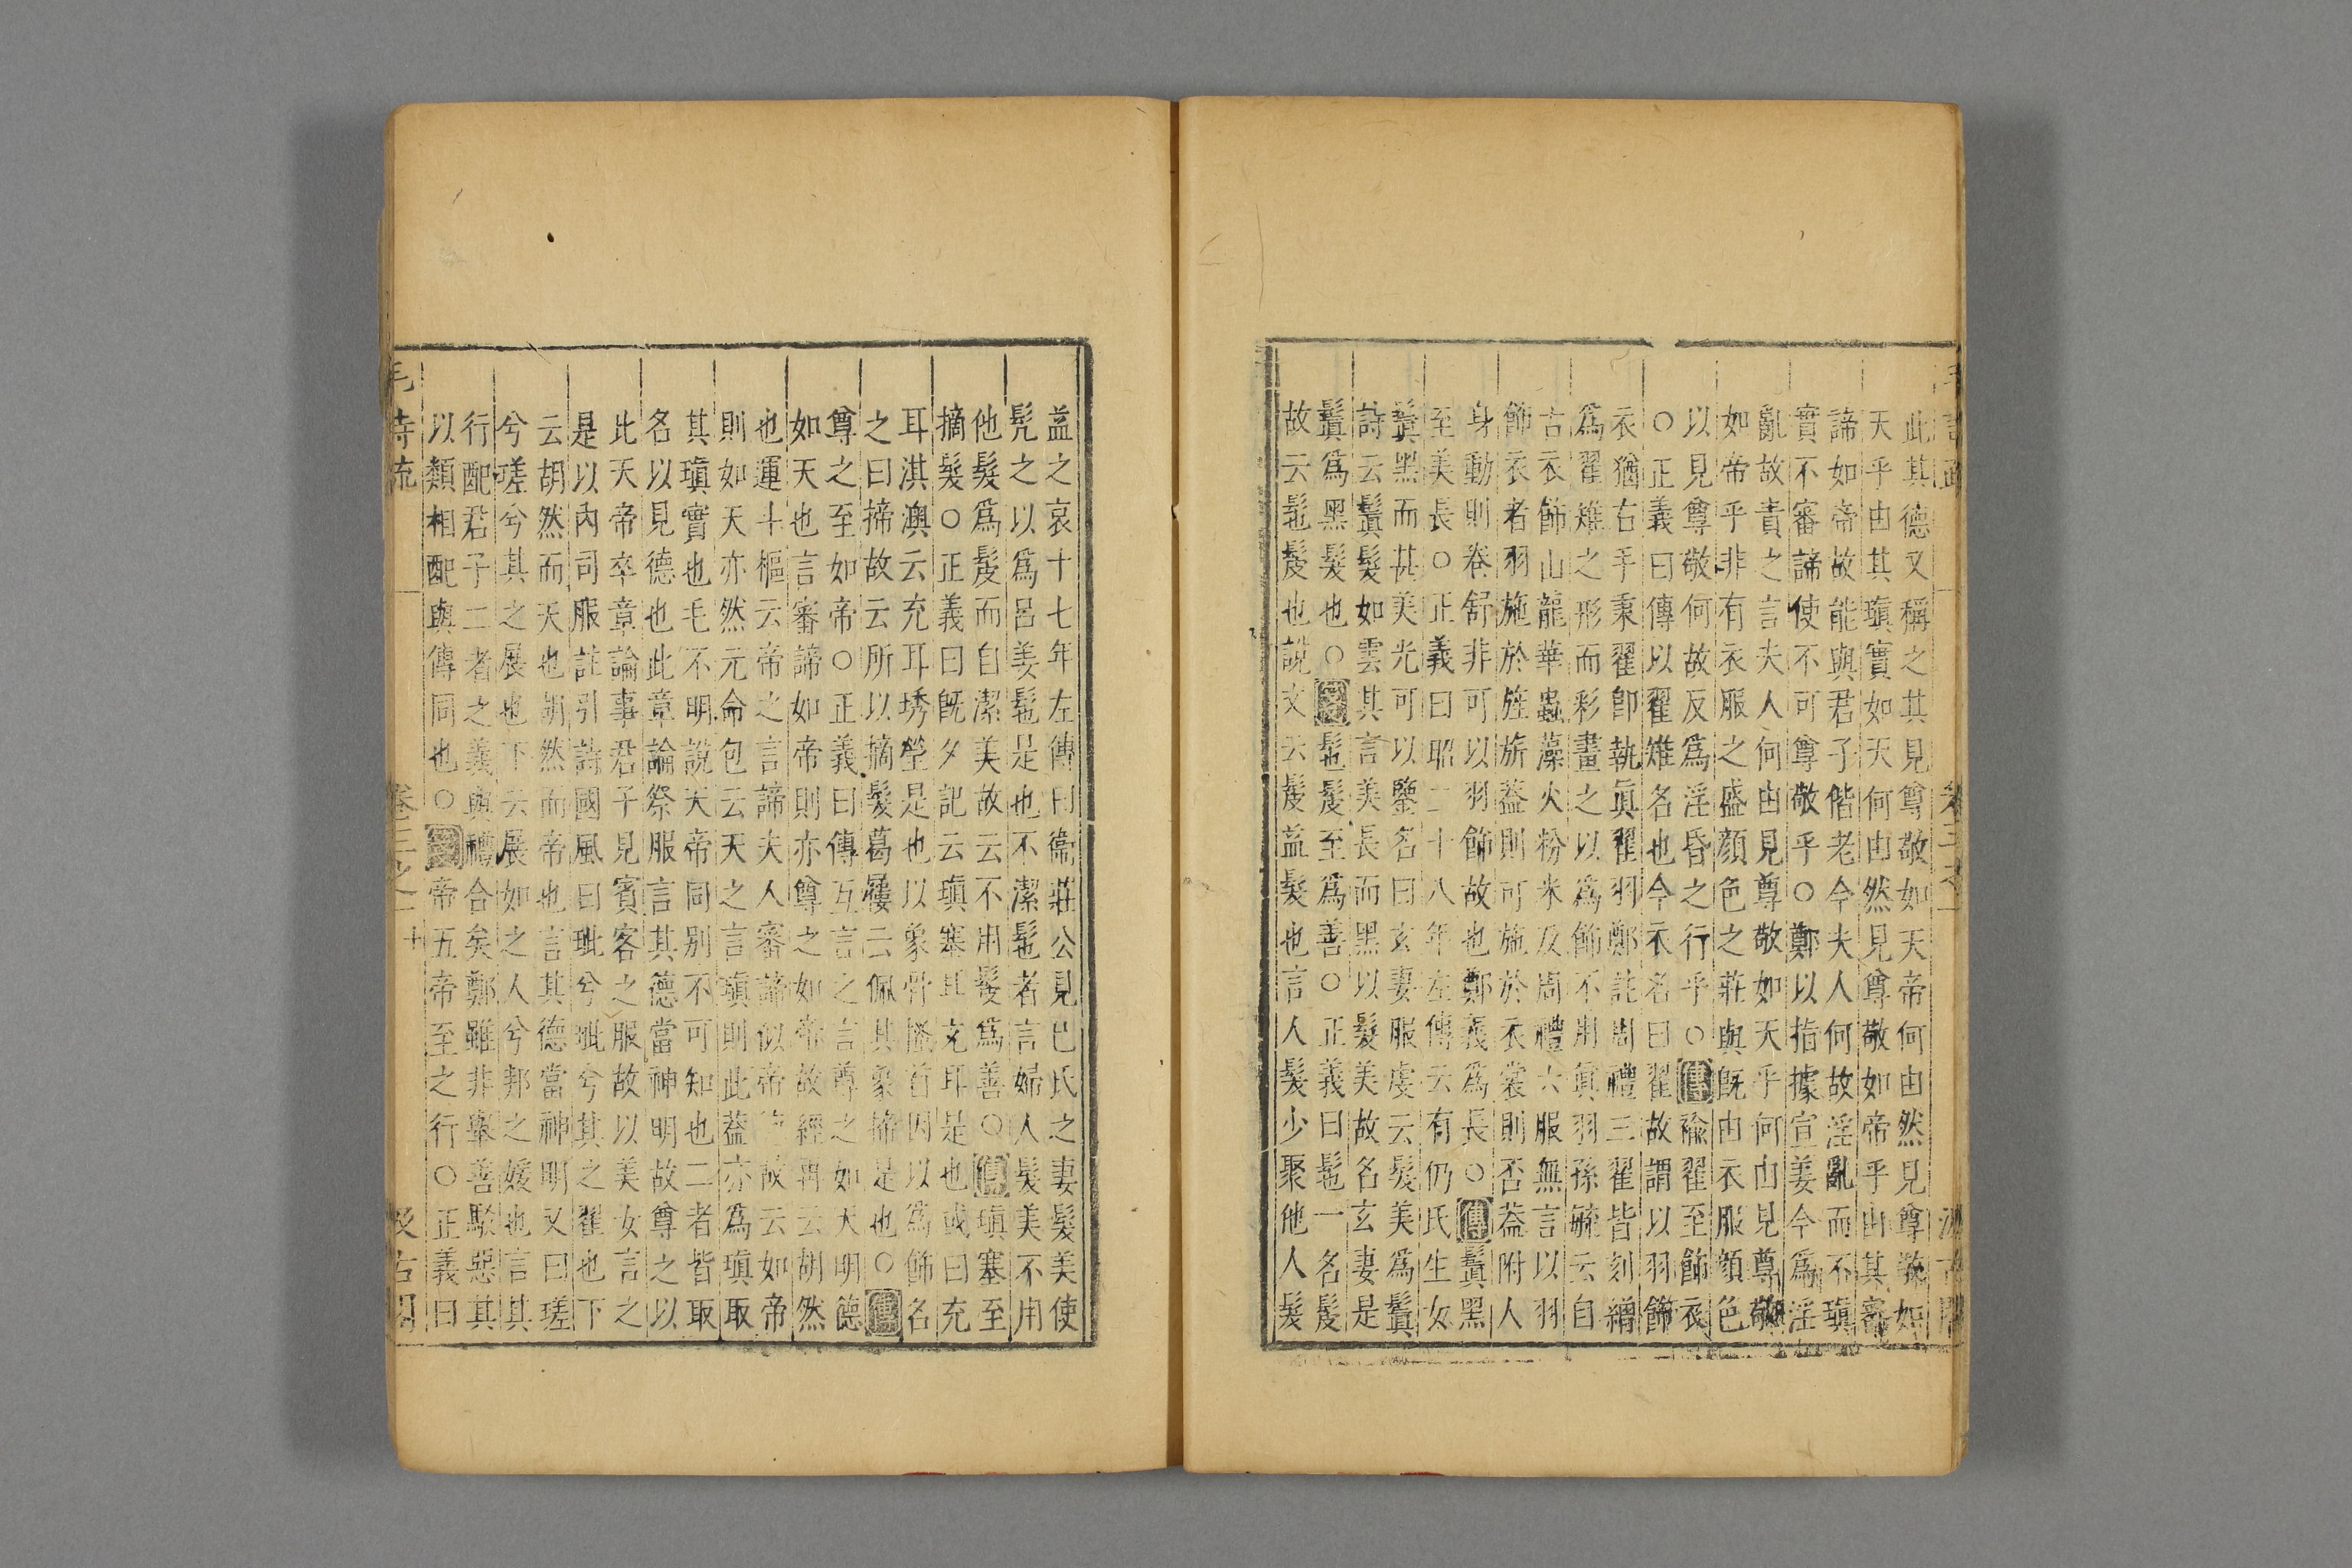 毛詩疏 卷三之一 汲古閣
此其德又稱之其見尊敬如天帝何由然見尊敬如
天乎由其瑱實如天何由然見尊敬如帝乎由其審
諦如帝故能與君子偕老今夫人何故淫亂而不瑱
實不審諦使不可尊敬乎○鄭以指據宣姜今爲淫
亂故責之言夫人何由見尊敬如天乎何由見尊敬
如帝乎非有衣服之盛顔色之莊與既由衣服顔色
以見尊敬何故反爲淫昏之行乎○傳褕翟至飾衣
○正義曰傳以翟雉名也今衣名曰翟故謂以羽飾
衣猶右手秉翟卽執眞翟羽鄭註周禮三翟皆刻繒
爲翟雉之形而彩畫之以爲飾不用眞羽孫毓云自
古衣飾山龍華蟲藻火粉米及周禮六服無言以羽
飾衣者羽施於旌旂葢則可施於衣裳則否葢附人
身動則卷舒非可以羽飾故也鄭義爲長○傳鬒黑
至美長○正義曰昭二十八年左傳云有仍氏生女
鬒黑而甚美光可以鑒名曰玄妻服虔云髮美爲鬒
詩云鬒髮如雲其言美長而黑以髮美故名玄妻是
鬒爲黑髮也○箋髢髲至爲善○正義曰髢一名髲
故云髢髲也說文云髲益髮也言人髮少聚他人髮
益之哀十七年左傳曰衞莊公見巳氏之妻髮美使
髠之以爲呂姜髢是也不潔髢者言婦人髮美不用
他髮爲髲而自潔美故云不用髲爲善○傳瑱塞至
摘髮○正義曰既夕記云瑱塞耳充耳是也或曰充
耳淇澳云充耳琇瑩是也以象骨搔首因以爲飾名
之曰揥故云所以摘髮葛屨云佩其象揥是也○傳
尊之至如帝○正義曰傳互言之言尊之如天明德
如天也言審諦如帝則亦尊之如帝故經再云胡然
也運斗樞云帝之言諦夫人審諦似帝故云如帝
則如天亦然元命包云天之言瑱則此葢亦爲瑱取
其瑱實也毛不明說天帝同别不可知也二者皆取
名以見德也此章論祭服言其德當神明故尊之以
此天帝卒章論事君子見賓客之服故以美女言之
是以內司服註引詩國風曰玼兮玼兮其之翟也下
云胡然而天也胡然而帝也言其德當神明又曰瑳
兮瑳兮其之展也下云展如之人兮邦之媛也言其
行配君子二者之義與禮合矣鄭雖非舉善駁惡其
以類相配與傳同也○箋帝五帝至之行○正義曰
毛詩疏 卷三之一 十 汲古閣